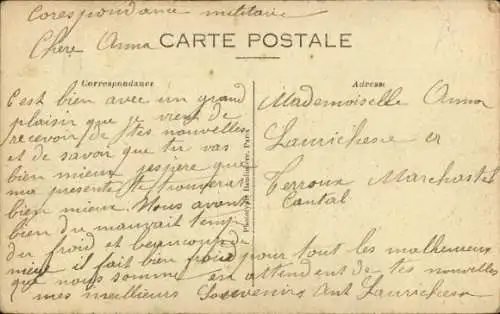 Corespondance militaire
Chere Anna
CARTE POSTALE
Correspondance
C'est bien avec un grand
plaisir que je vient de
recevoir de tes nouvelles
et de savoir que tu vas
bien mieux jespère que
ma presente te trouveras
bien mieux. Nous avont
bien du mauvait temp
du froid et beaucoup de
il fait bien froid pour tout les malheureux
que nous somme en attendent de tes nouvelles
mes meilliurs Souvenirs Ant Laurichesse
Adresse
Mademoiselle Anna
Laurichesse
Terroux Marchastel
Cantal
Phototypie Baudinière, Paris